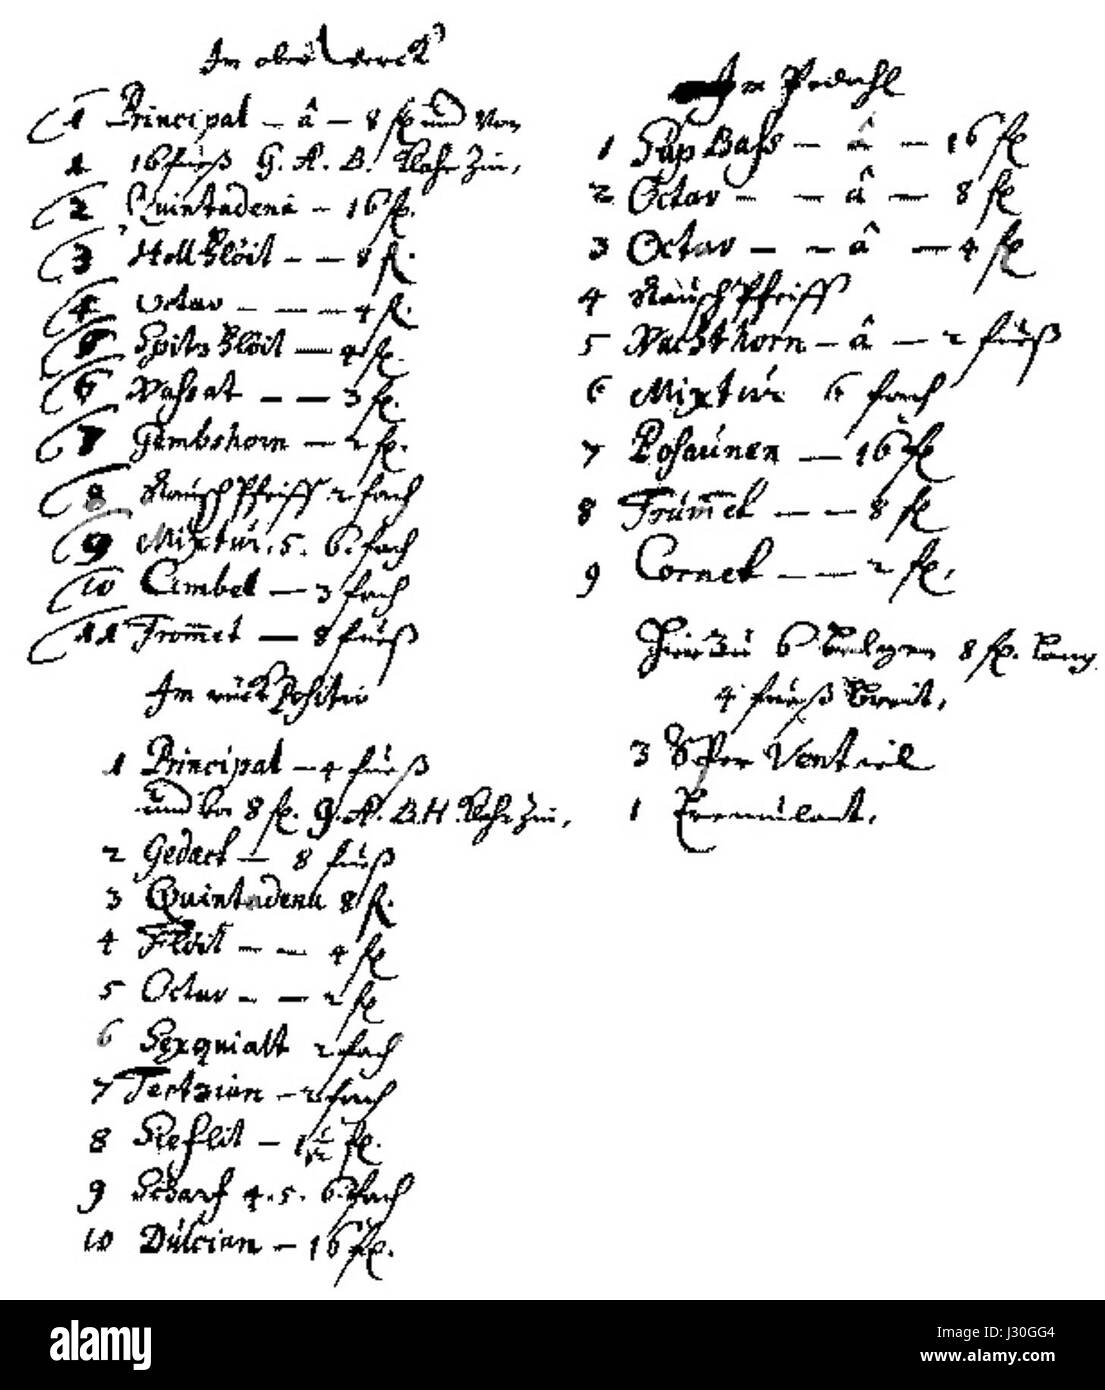 Im oberwerck
1 Principal – â – 8 fß und von
1 16 fuß G. A. B. Rohr Zin,
2 Quintadena – 16 fß.
3 Holl Flöit – – 8 fß.
4 Octav – – – 4 fß.
5 Spitz Flöit – 4 fß.
6 Nassat – – 3 fß.
7 Gembshorn – 2 fß.
8 Rausch Pfeiff 2 fach
9 Mixtur. 5. 6. fach
10 Cimbel – 3 fach
11 Trommet – 8 fuß
Im rück Positiv
1 Principal – 4 fuß
und von 8 fß. G. A. B. H. Rohr Zin,
2 Gedact – 8 fuß
3 Quintadena 8 fß.
4 Flöit – – 4 fß
5 Octav – – 2 fß
6 Sexquialt 2 fach
7 Tertzian – 2 fach
8 Sieflit – 1 1/2 fß.
9 Scharf 4. 5. 6. fach
10 Dulcian – 16 fß.
Im Pedahl
1 Sup Bass – â – 16 fß
2 Octav – – â – 8 fß
3 Octav – – â – 4 fß
4 Rausch Pfeiff
5 Nachthorn – â – 2 fuß
6 Mixtur 6 fach
7 Posaunen – 16 fß
8 Trummet – – 8 fß
9 Cornet – – 2 fß.
Hier Zu 6 8 fß. Lang
4 fuß Breit,
3 Sper Ventiel
1 Tremulant.
alamy
Image ID: J30GG4
www.alamy.com